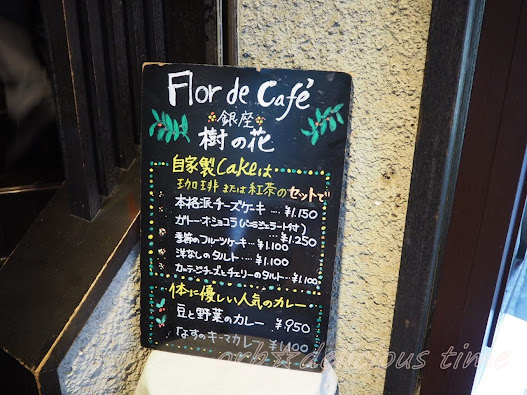 Flor de Café
銀座
樹の花
自家製Cakeは
珈琲または紅茶のセットで
本格派チーズケーキ ... ¥1.150
ガトーオショコラ(バニラジェラート付)
... ¥1.250
季節のフルーツケーキ ... ¥1.100
洋なしのタルト ... ¥1.100
カッテージチーズとチェリーのタルト ... ¥1.100
体に優しい人気のカレー
豆と野菜のカレー ¥950
なすのキーマカレー ¥1.100
orb☆delicious time